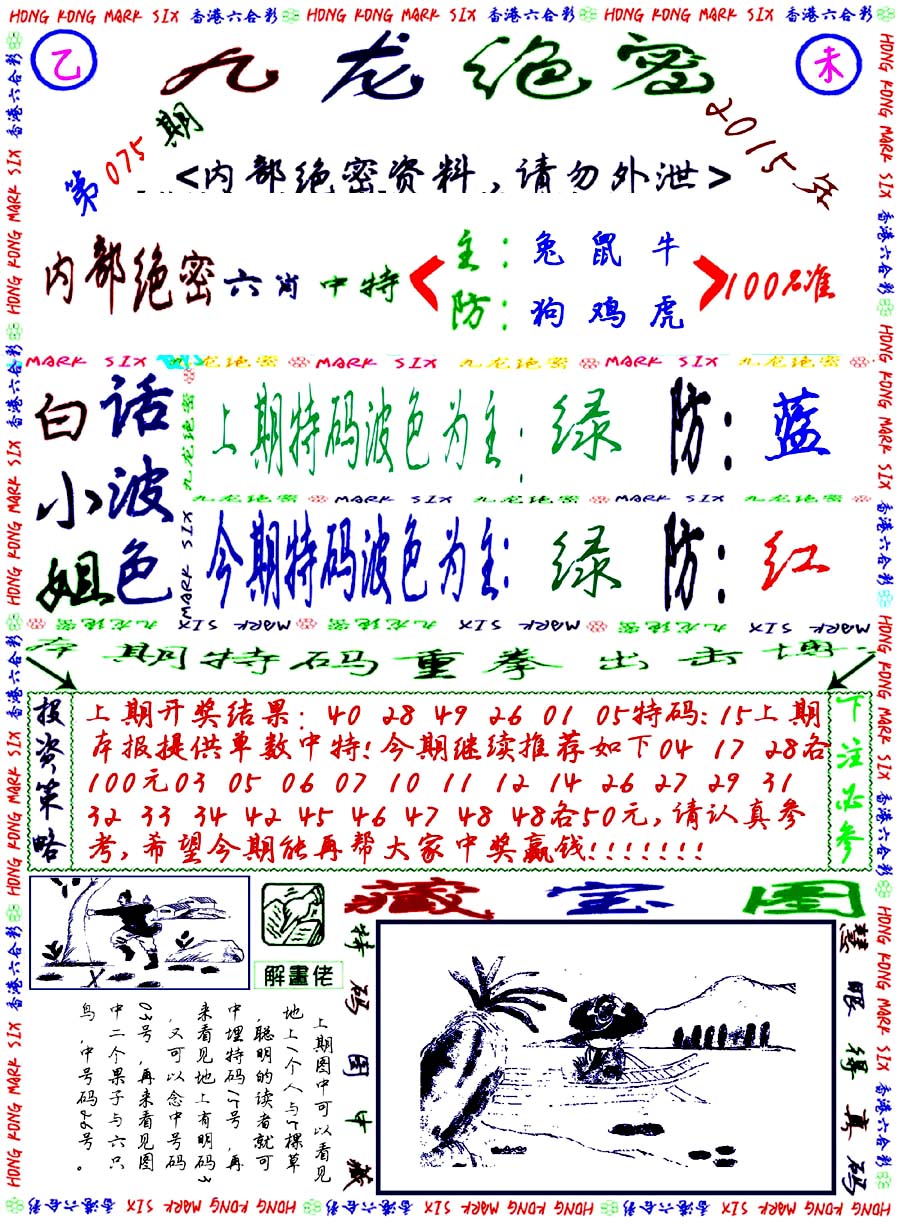 HONG KONG MARK SIX 香港六合彩 HONG KONG MARK SIX 香港六合彩 HONG KONG MARK SIX 香港六合彩
乙
九龙绝密
未
第075期
2015年
<内部绝密资料,请勿外泄>
内部绝密六肖中特
主:兔鼠牛
防:狗鸡虎
100%准
MARK SIX 九龙绝密 MARK SIX 九龙绝密 MARK SIX 九龙绝密
白小姐
话波色
上期特码波色为主:绿 防:蓝
九龙绝密 MARK SIX 九龙绝密 MARK SIX 九龙绝密
今期特码波色为主:绿 防:红
九龙绝密 MARK SIX 九龙绝密 MARK SIX 九龙绝密 MARK SIX
本期特码重拳出击博
投资策略
上期开奖结果:40 28 49 26 01 05特码:15上期
本报提供单数中特!今期继续推荐如下04 17 28各
100元03 05 06 07 10 11 12 14 26 27 29 31
32 33 34 42 45 46 47 48 48各50元,请认真参
考,希望今期能再帮大家中奖赢钱!!!!!!!
下注必参
藏宝图
解畫佬
特码图中藏
慧眼得真码
上期图中可以看见
地上1个人与5棵草
,聪明的读者就可
中埋特码15号,再
来看见地上有明码3
,又可以念中号码
03号,再来看见图
中二个果子与六只
鸟,中号码26号。
HONG KONG MARK SIX 香港六合彩 HONG KONG MARK SIX 香港六合彩 HONG KONG MARK SIX 香港六合彩